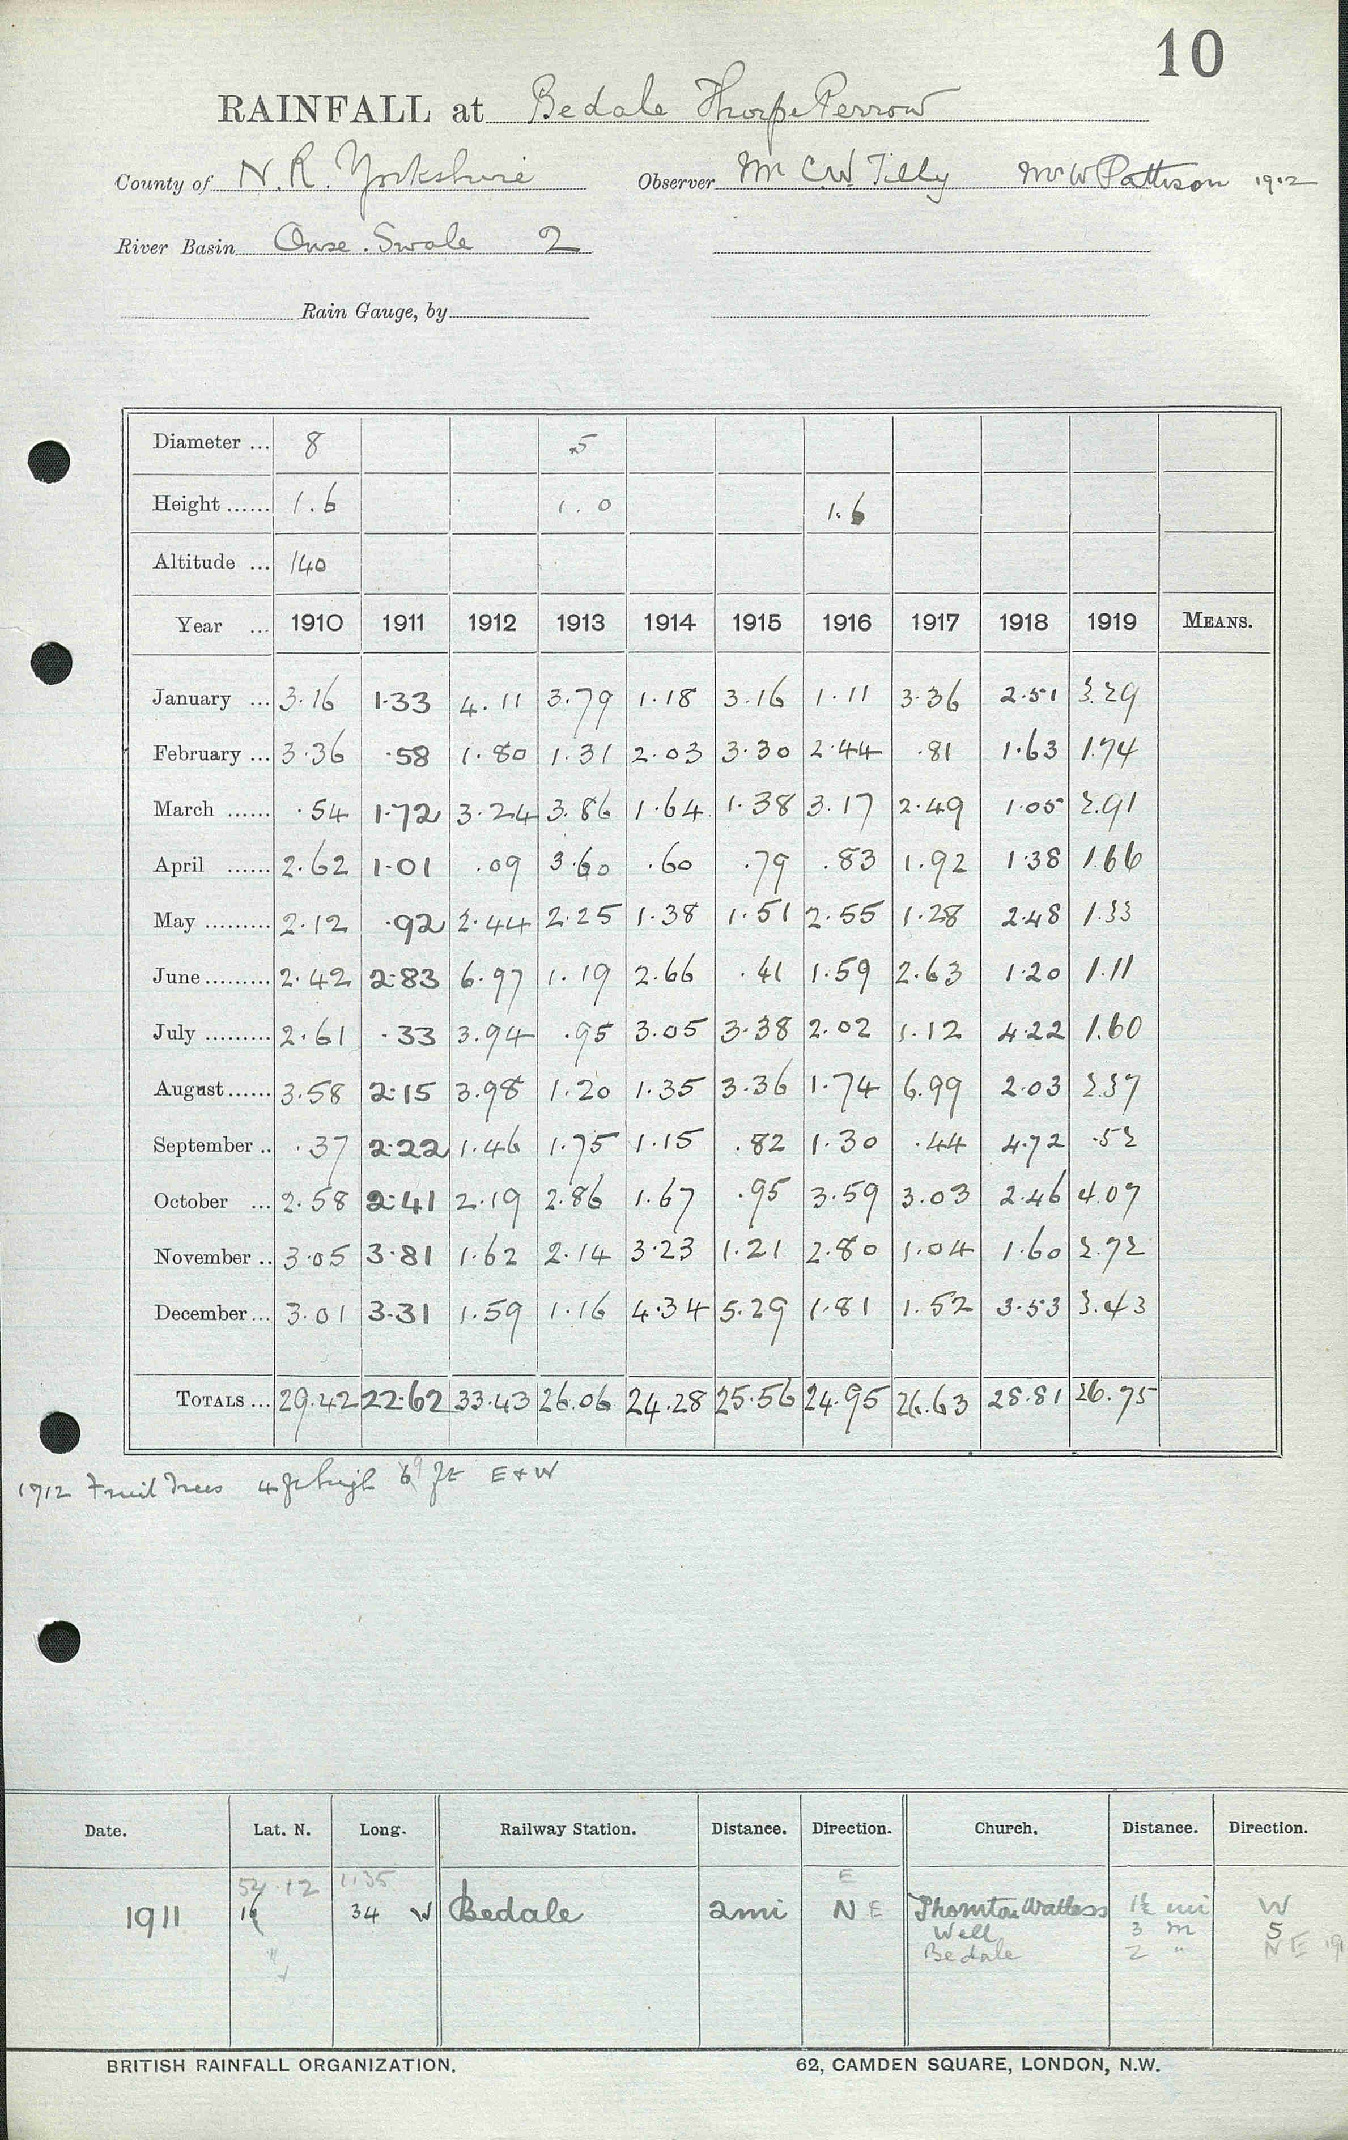 10
RAINFALL at Bedale Thorpe Perrow
County of N.R. Yorkshire Observer Mr C.W. Tilly Mr W Pattison 1912
River Basin Ouse . Swale 2
Rain Gauge, by
Diameter ... 8 5
Height ...... 1.6 1.0 1.6
Altitude ... 140
Year ... 1910 1911 1912 1913 1914 1915 1916 1917 1918 1919 MEANS.
January ... 3.16 1.33 4.11 3.79 1.18 3.16 1.11 3.36 2.51 3.29
February ... 3.36 .58 1.80 1.31 2.03 3.30 2.44 .81 1.63 1.74
March ...... .54 1.72 3.24 3.86 1.64 1.38 3.17 2.49 1.05 2.91
April ...... 2.62 1.01 .09 3.60 .60 .79 .83 1.92 1.38 1.66
May ......... 2.12 .92 2.44 2.25 1.38 1.51 2.55 1.28 2.48 1.33
June ......... 2.42 2.83 6.97 1.19 2.66 .41 1.59 2.63 1.20 1.11
July ......... 2.61 .33 3.94 .95 3.05 3.38 2.02 1.12 4.22 1.60
August ...... 3.58 2.15 3.98 1.20 1.35 3.36 1.74 6.99 2.03 2.37
September .. .37 2.22 1.46 1.75 1.15 .82 1.30 .44 4.72 .52
October ... 2.58 2.41 2.19 2.86 1.67 .95 3.59 3.03 2.46 4.07
November .. 3.05 3.81 1.62 2.14 3.23 1.21 2.80 1.04 1.60 2.72
December ... 3.01 3.31 1.59 1.16 4.34 5.29 1.81 1.52 3.53 3.43
TOTALS ... 29.42 22.62 33.43 26.06 24.28 25.56 24.95 26.63 28.81 26.75
1912 Fruit Trees 4 ft high ft E + W
Date. Lat. N. Long. Railway Station. Distance. Direction. Church. Distance. Direction.
54 12 1.35 E
1911 16 34 W Bedale 2 mi N E Thornton Watlass 1½ mi W
Well 3 m S
Bedale 2 " N E
BRITISH RAINFALL ORGANIZATION. 62, CAMDEN SQUARE, LONDON, N.W.